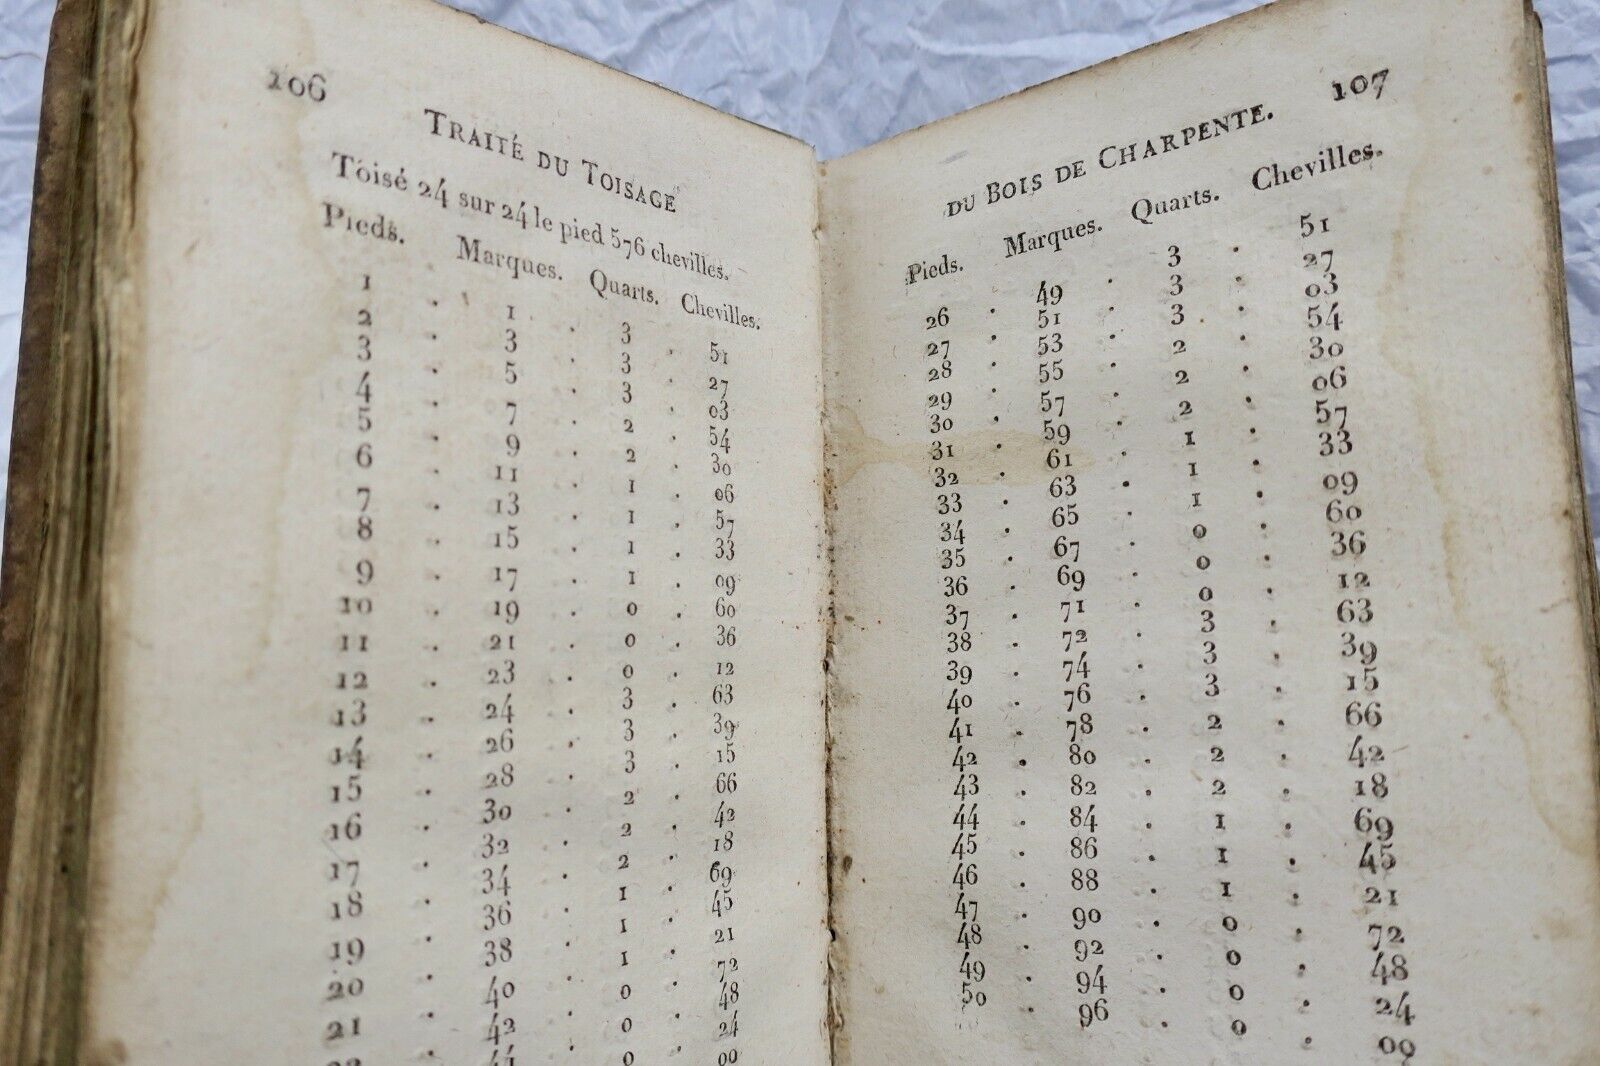 106
TRAITÉ DU TOISAGE
Toisé 24 sur 24 le pied 576 chevilles.
Pieds. Marques. Quarts. Chevilles.
1 . 1 . 3 . 51
2 . 3 . 3 . 27
3 . 5 . 3 . 03
4 . 7 . 2 . 54
5 . 9 . 2 . 30
6 . 11 . 1 . 06
7 . 13 . 1 . 57
8 . 15 . 1 . 33
9 . 17 . 1 . 09
10 . 19 . 0 . 60
11 . 21 . 0 . 36
12 . 23 . 0 . 12
13 . 24 . 3 . 63
14 . 26 . 3 . 39
15 . 28 . 3 . 15
16 . 30 . 2 . 66
17 . 32 . 2 . 42
18 . 34 . 2 . 18
19 . 36 . 1 . 69
20 . 38 . 1 . 45
21 . 40 . 1 . 21
42 . 0 . 72
0 . 48
0 . 24
00
107
DU BOIS DE CHARPENTE.
Pieds. Marques. Quarts. Chevilles.
26 . 49 . 3 . 51
27 . 51 . 3 . 27
28 . 53 . 3 . 03
29 . 55 . 2 . 54
30 . 57 . 2 . 30
31 . 59 . 2 . 06
32 . 61 . 1 . 57
33 . 63 . 1 . 33
34 . 65 . 1 . 09
35 . 67 . 0 . 60
36 . 69 . 0 . 36
37 . 71 . 0 . 12
38 . 72 . 3 . 63
39 . 74 . 3 . 39
40 . 76 . 3 . 15
41 . 78 . 2 . 66
42 . 80 . 2 . 42
43 . 82 . 2 . 18
44 . 84 . 1 . 69
45 . 86 . 1 . 45
46 . 88 . 1 . 21
47 . 90 . 0 . 72
48 . 92 . 0 . 48
49 . 94 . 0 . 24
50 . 96 . 0 . 00